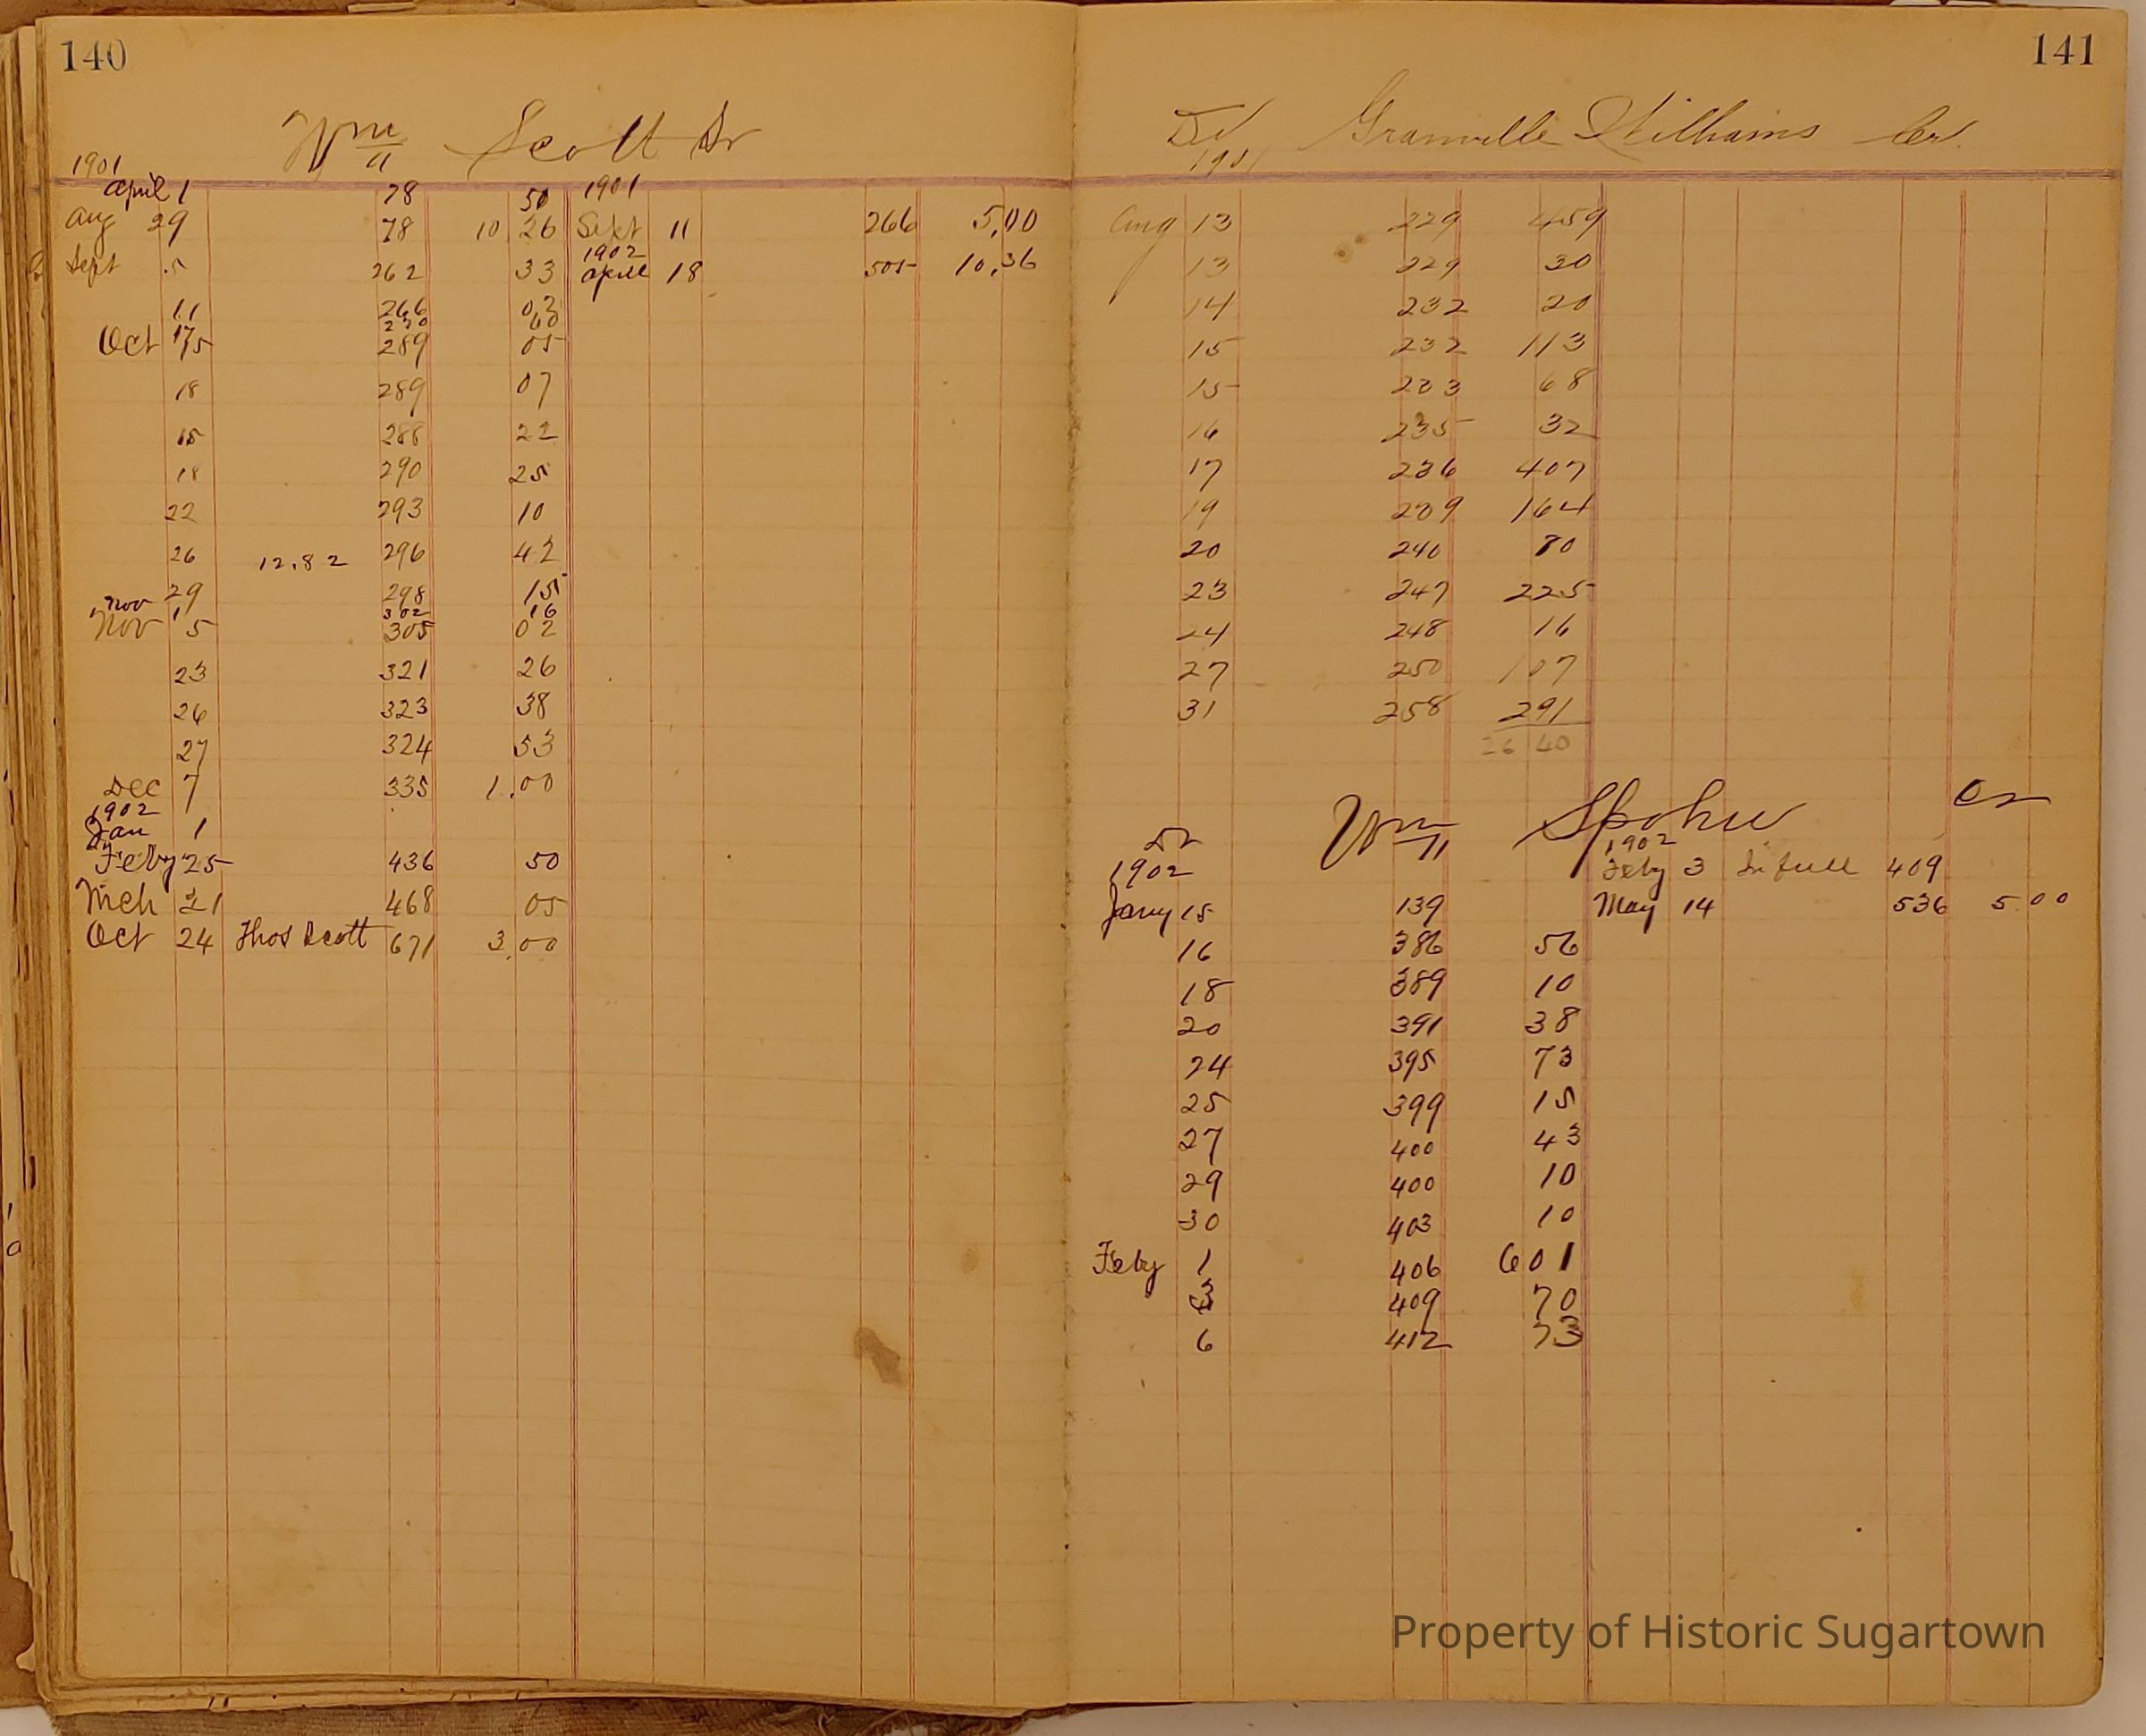 140
Wm Scott Dr
1901
April 1 78 50 1901
Aug 29 78 10 26 Sept 11 266 5,00
1902
Sept 5 262 33 April 18 505 10,36
11 266 03
270 60
Oct 15 289 05
18 289 07
15 288 22
18 290 25
22 293 10
26 12.82 296 42
29 298 15
Nov 1 302 16
Nov 5 305 02
23 321 26
26 323 38
27 324 53
Dec 7 335 1.00
1902
Jan 1
Feby 25 436 50
Mch 21 468 05
Oct 24 Thos Scott 671 3.00
141
Dr Granville Williams Cr.
1901
Aug 13 229 459
13 229 30
14 232 20
15 232 113
15 233 68
16 235 32
17 236 407
19 239 164
20 240 80
23 247 225
24 248 16
27 250 107
31 258 291
40
Dr Wm Spohn Cr
1902
1902 Feby 3 In full 409
Jany 15 139 May 14 536 5 00
16 386 56
18 389 10
20 391 38
24 395 73
25 399 15
27 400 43
29 400 10
30 403 10
Feby 1 406 601
3 409 70
6 412 73
Property of Historic Sugartown